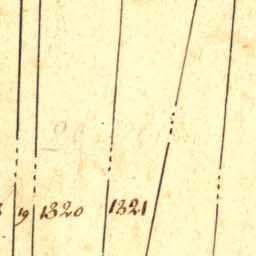 19 1320 1321